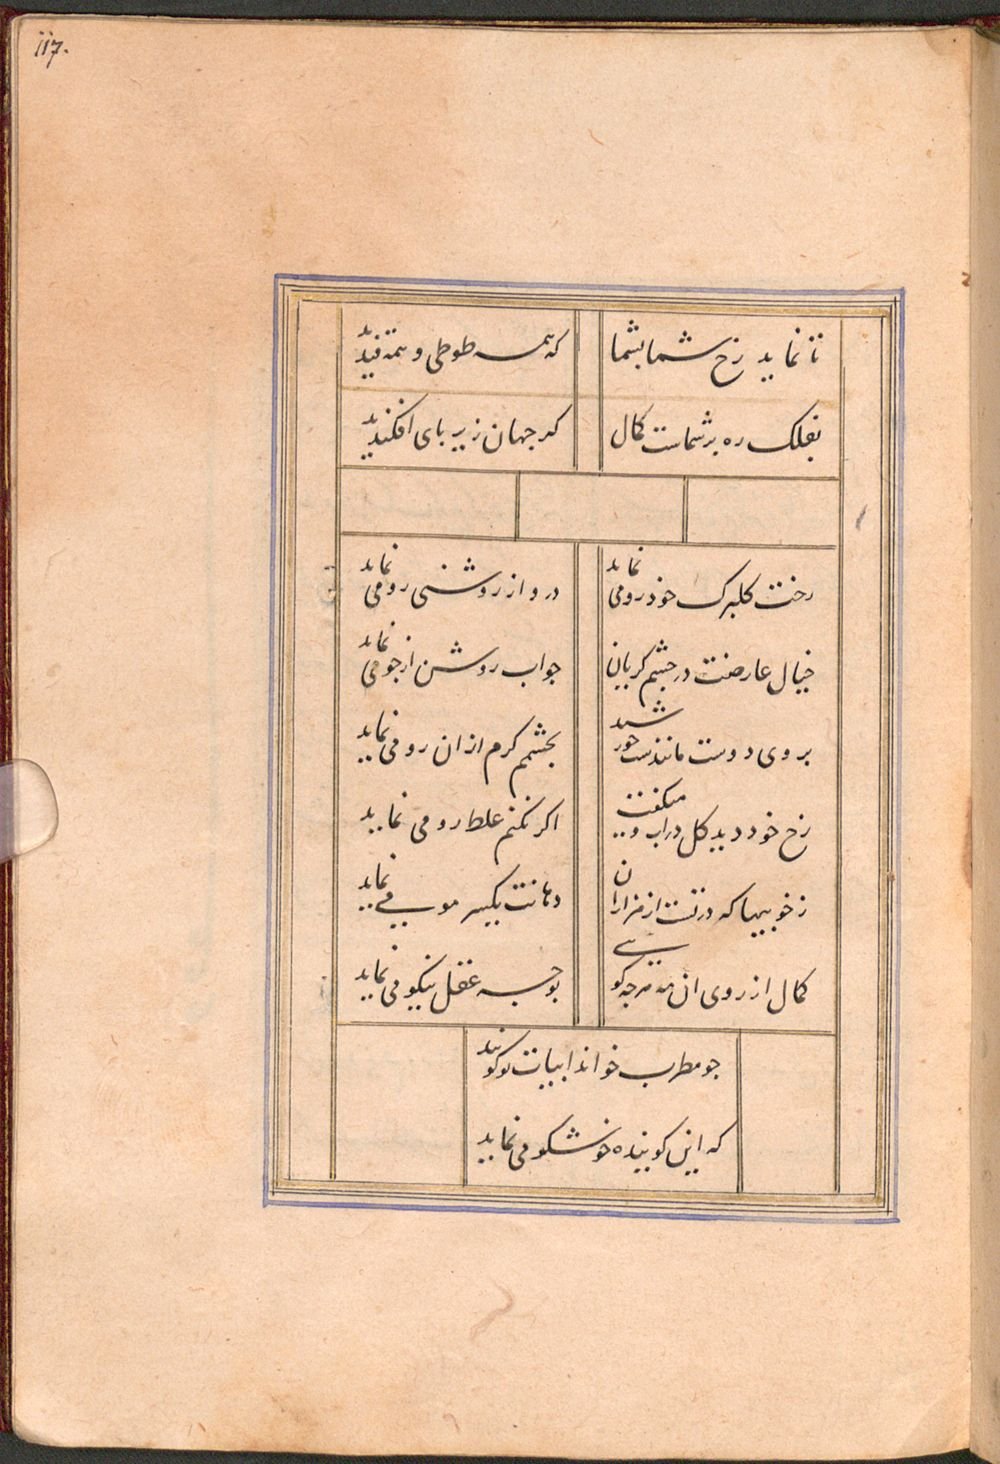 117.
تا نماید رخ شما بشما
که همه طوطی و همه قندید
بفلک ره بر شماست کمال
کر جهان زیر بای افکندید
رخت کلبرک خودرو می نماید
درو از روشنی رو می نماید
خیال عارضت در جشم کریان
جواب روشن از جو می نماید
بروی دوست مانندست خورشید
بجشمم کرم ازان رو می نماید
رخ خود دید کل در اب و میکفت
اکر نکنم غلط رو می نماید
ز خوبیها که درتست از هزاران
دهانت یکسر مویی می نماید
کمال از روی ان مه هرجه کویی
بوجه عقل نیکو می نماید
جو مطرب خواند ابیات تو کویند
که این کوینده خوشکو می نماید